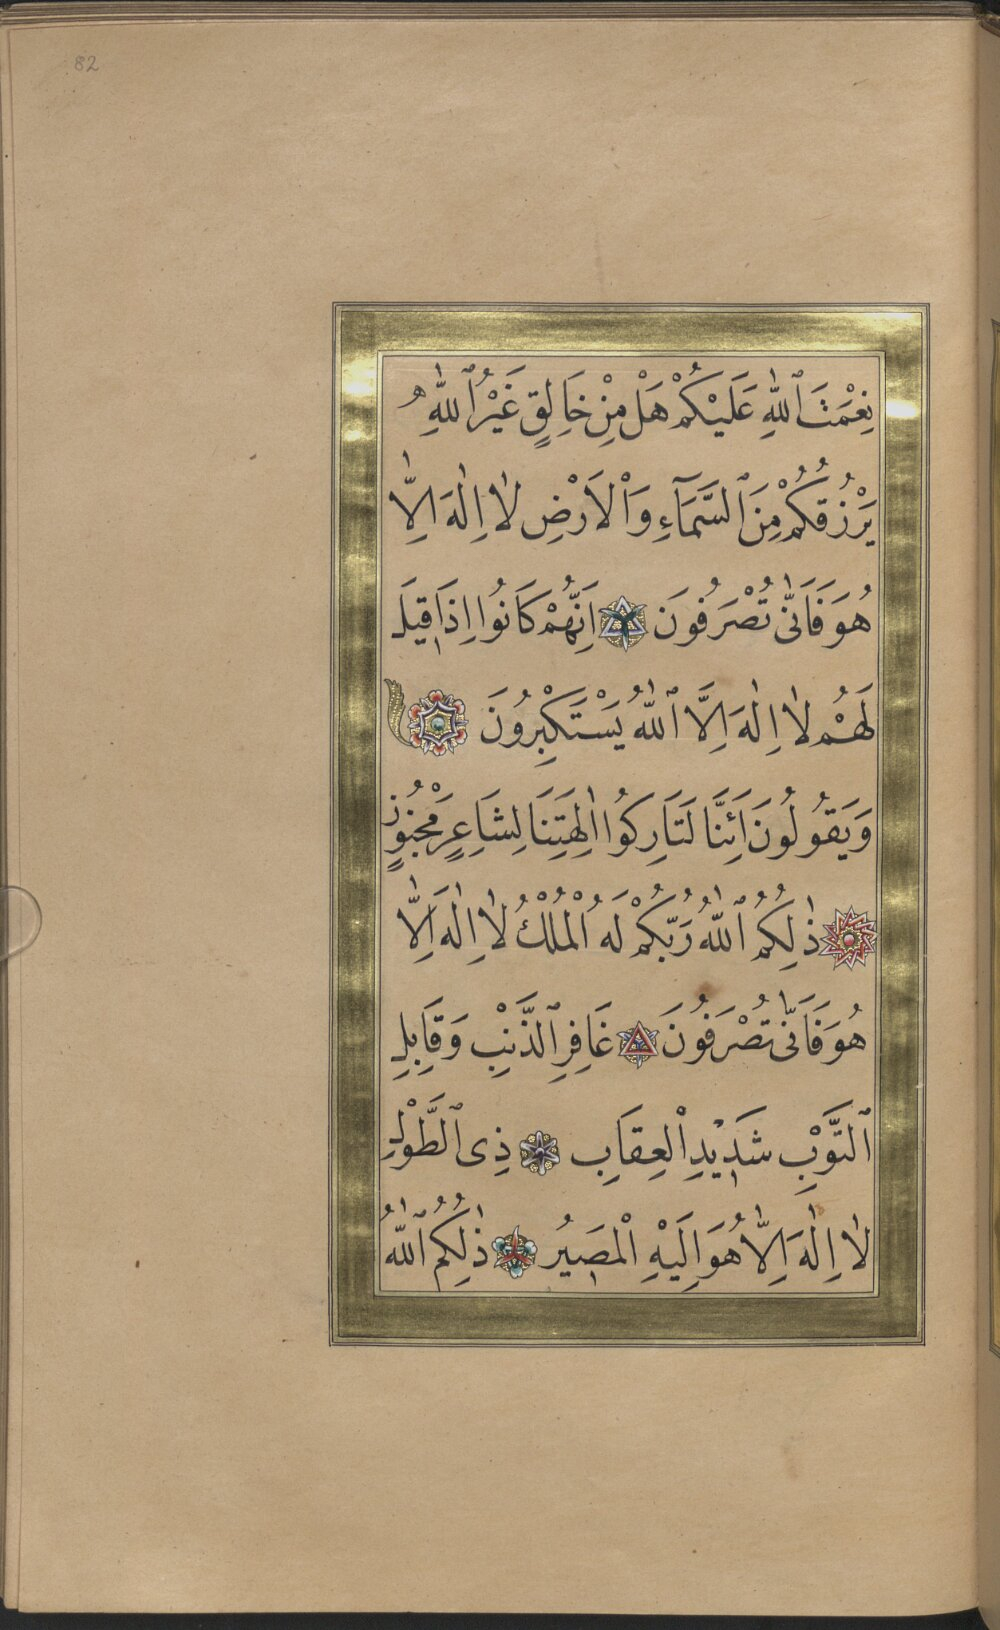 82
نِعْمَتَ ٱللّٰهِ عَلَيْكُمْ هَلْ مِنْ خَالِقٍ غَيْرُ ٱللّٰهِ
يَرْزُقُكُمْ مِنَ ٱلسَّمَآءِ وَاْلاَرْضِ لاٰ اِلٰهَ اِلاّٰ
هُوَ فَاَنّٰى تُصْرَفُونَ اِنَّهُمْ كَانُوا اِذَا قِيلَ
لَهُمْ لاٰ اِلٰهَ اِلاَّ ٱللّٰهُ يَسْتَكْبِرُونَ
وَيَقُولُونَ اَئِنَّا لَتَارِكُوا اٰلِهَتِنَا لِشَاعِرٍ مَجْنُونٍ
ذٰلِكُمُ ٱللّٰهُ رَبُّكُمْ لَهُ الْمُلْكُ لاٰ اِلٰهَ اِلاّٰ
هُوَ فَاَنّٰى تُصْرَفُونَ غَافِرِ ٱلذَّنْبِ وَقَابِلِ
ٱلتَّوْبِ شَدِيدِ اْلعِقَابِ ذِى ٱلطَّوْلِ
لاٰ اِلٰهَ اِلاّٰ هُوَ اِلَيْهِ الْمَصِيرُ ذٰلِكُمُ ٱللّٰهُ